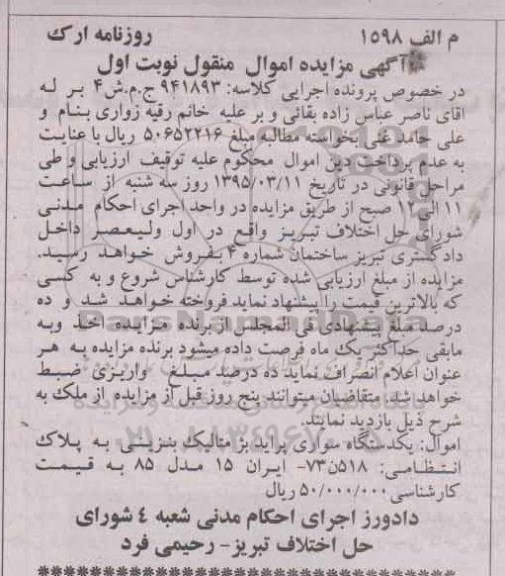 م الف ۱۵۹۸ روزنامه ارک
آگهی مزایده اموال منقول نوبت اول
در خصوص پرونده اجرایی کلاسه: ۹۴۱۸۹۳ ج.م.ش۴ بر له
اقای ناصر عباس زاده بقائی و بر علیه خانم رقیه زواری بنام و
علی حامد غنی بخواسته مطالبه مبلغ ۵۰۶۵۲۲۱۶ ریال با عنایت
به عدم پرداخت دین اموال محکوم علیه توقیف ارزیابی و طی
مراحل قانونی در تاریخ ۱۳۹۵/۰۳/۱۱ روز سه شنبه از ساعت
۱۱ الی ۱۲ صبح از طریق مزایده در واحد اجرای احکام مدنی
شورای حل اختلاف تبریز واقع در اول ولیعصر داخل
دادگستری تبریز ساختمان شماره ۴ بفروش خواهد رسید.
مزایده از مبلغ ارزیابی شده توسط کارشناس شروع و به کسی
که بالاترین قیمت را پیشنهاد نماید فروخته خواهد شد و ده
درصد مبلغ پیشنهادی فی المجلس از برنده مزایده اخذ وبه
مابقی حداکثر یک ماه فرصت داده میشود برنده مزایده به هر
عنوان اعلام انصراف نماید ده درصد مبلغ واریزی ضبط
خواهد شد. متقاضیان میتوانند پنج روز قبل از مزایده از ملک به
شرح ذیل بازدید نمایند.
اموال: یکدستگاه سواری پراید بژ متالیک بنزینی به پلاک
انتظامی: ۵۱۸ن۷۳- ایران ۱۵ مدل ۸۵ به قیمت
کارشناسی ۵۰/۰۰۰/۰۰۰ ریال
دادورز اجرای احکام مدنی شعبه ۴ شورای
حل اختلاف تبریز- رحیمی فرد
ParsNamadData
۰۲۱-۸۸۳۴۹۶۷۰-۵